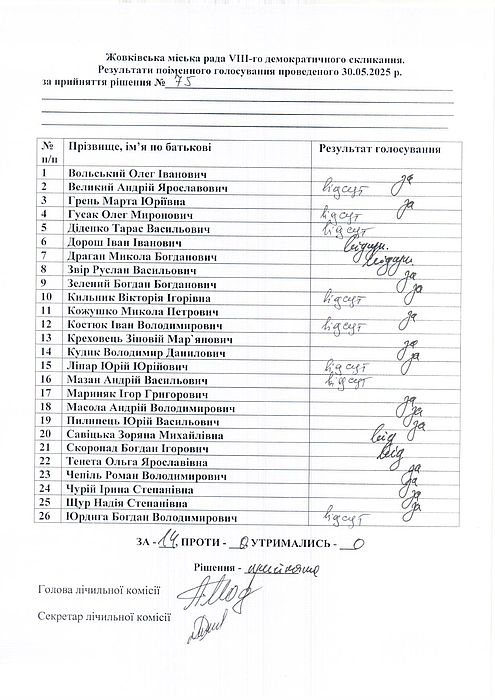 Жовківська міська рада VIII-го демократичного скликання.
Результати поіменного голосування проведеного 30.05.2025 р.
за прийняття рішення № 75
№ п/п Прізвище, ім’я по батькові Результат голосування
1 Вольський Олег Іванович за
2 Великий Андрій Ярославович відсут
3 Грень Марта Юріївна за
4 Гусак Олег Миронович відсут
5 Діденко Тарас Васильович відсут
6 Дорош Іван Іванович
7 Драган Микола Богданович
8 Звір Руслан Васильович за
9 Зелений Богдан Богданович за
10 Кильник Вікторія Ігорівна відсут
11 Кожушко Микола Петрович за
12 Костюк Іван Володимирович відсут
13 Креховець Зіновій Мар`янович за
14 Кудик Володимир Данилович за
15 Ліпар Юрій Юрійович відсут
16 Мазан Андрій Васильович відсут
17 Марнияк Ігор Григорович за
18 Масола Андрій Володимирович за
19 Пилипець Юрій Васильович за
20 Савіцька Зоряна Михайлівна від
21 Скоропад Богдан Ігорович від
22 Тенета Ольга Ярославівна за
23 Чепіль Роман Володимирович за
24 Чурій Ірина Степанівна за
25 Щур Надія Степанівна за
26 Юрдига Богдан Володимирович відсут
ЗА - 14, ПРОТИ - 0 УТРИМАЛИСЬ - 0
Рішення - прийнято
Голова лічильної комісії
Секретар лічильної комісії